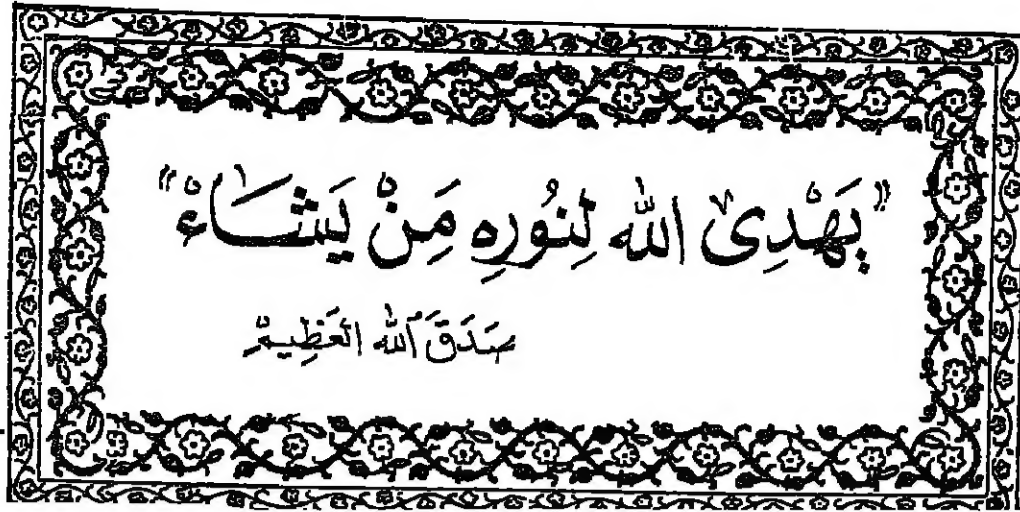 "يَهْدِى اللّٰه لِنُورِهِ مَنْ يَشَاءُ"
صَدَقَ ٱللّٰه العَظِيمُ